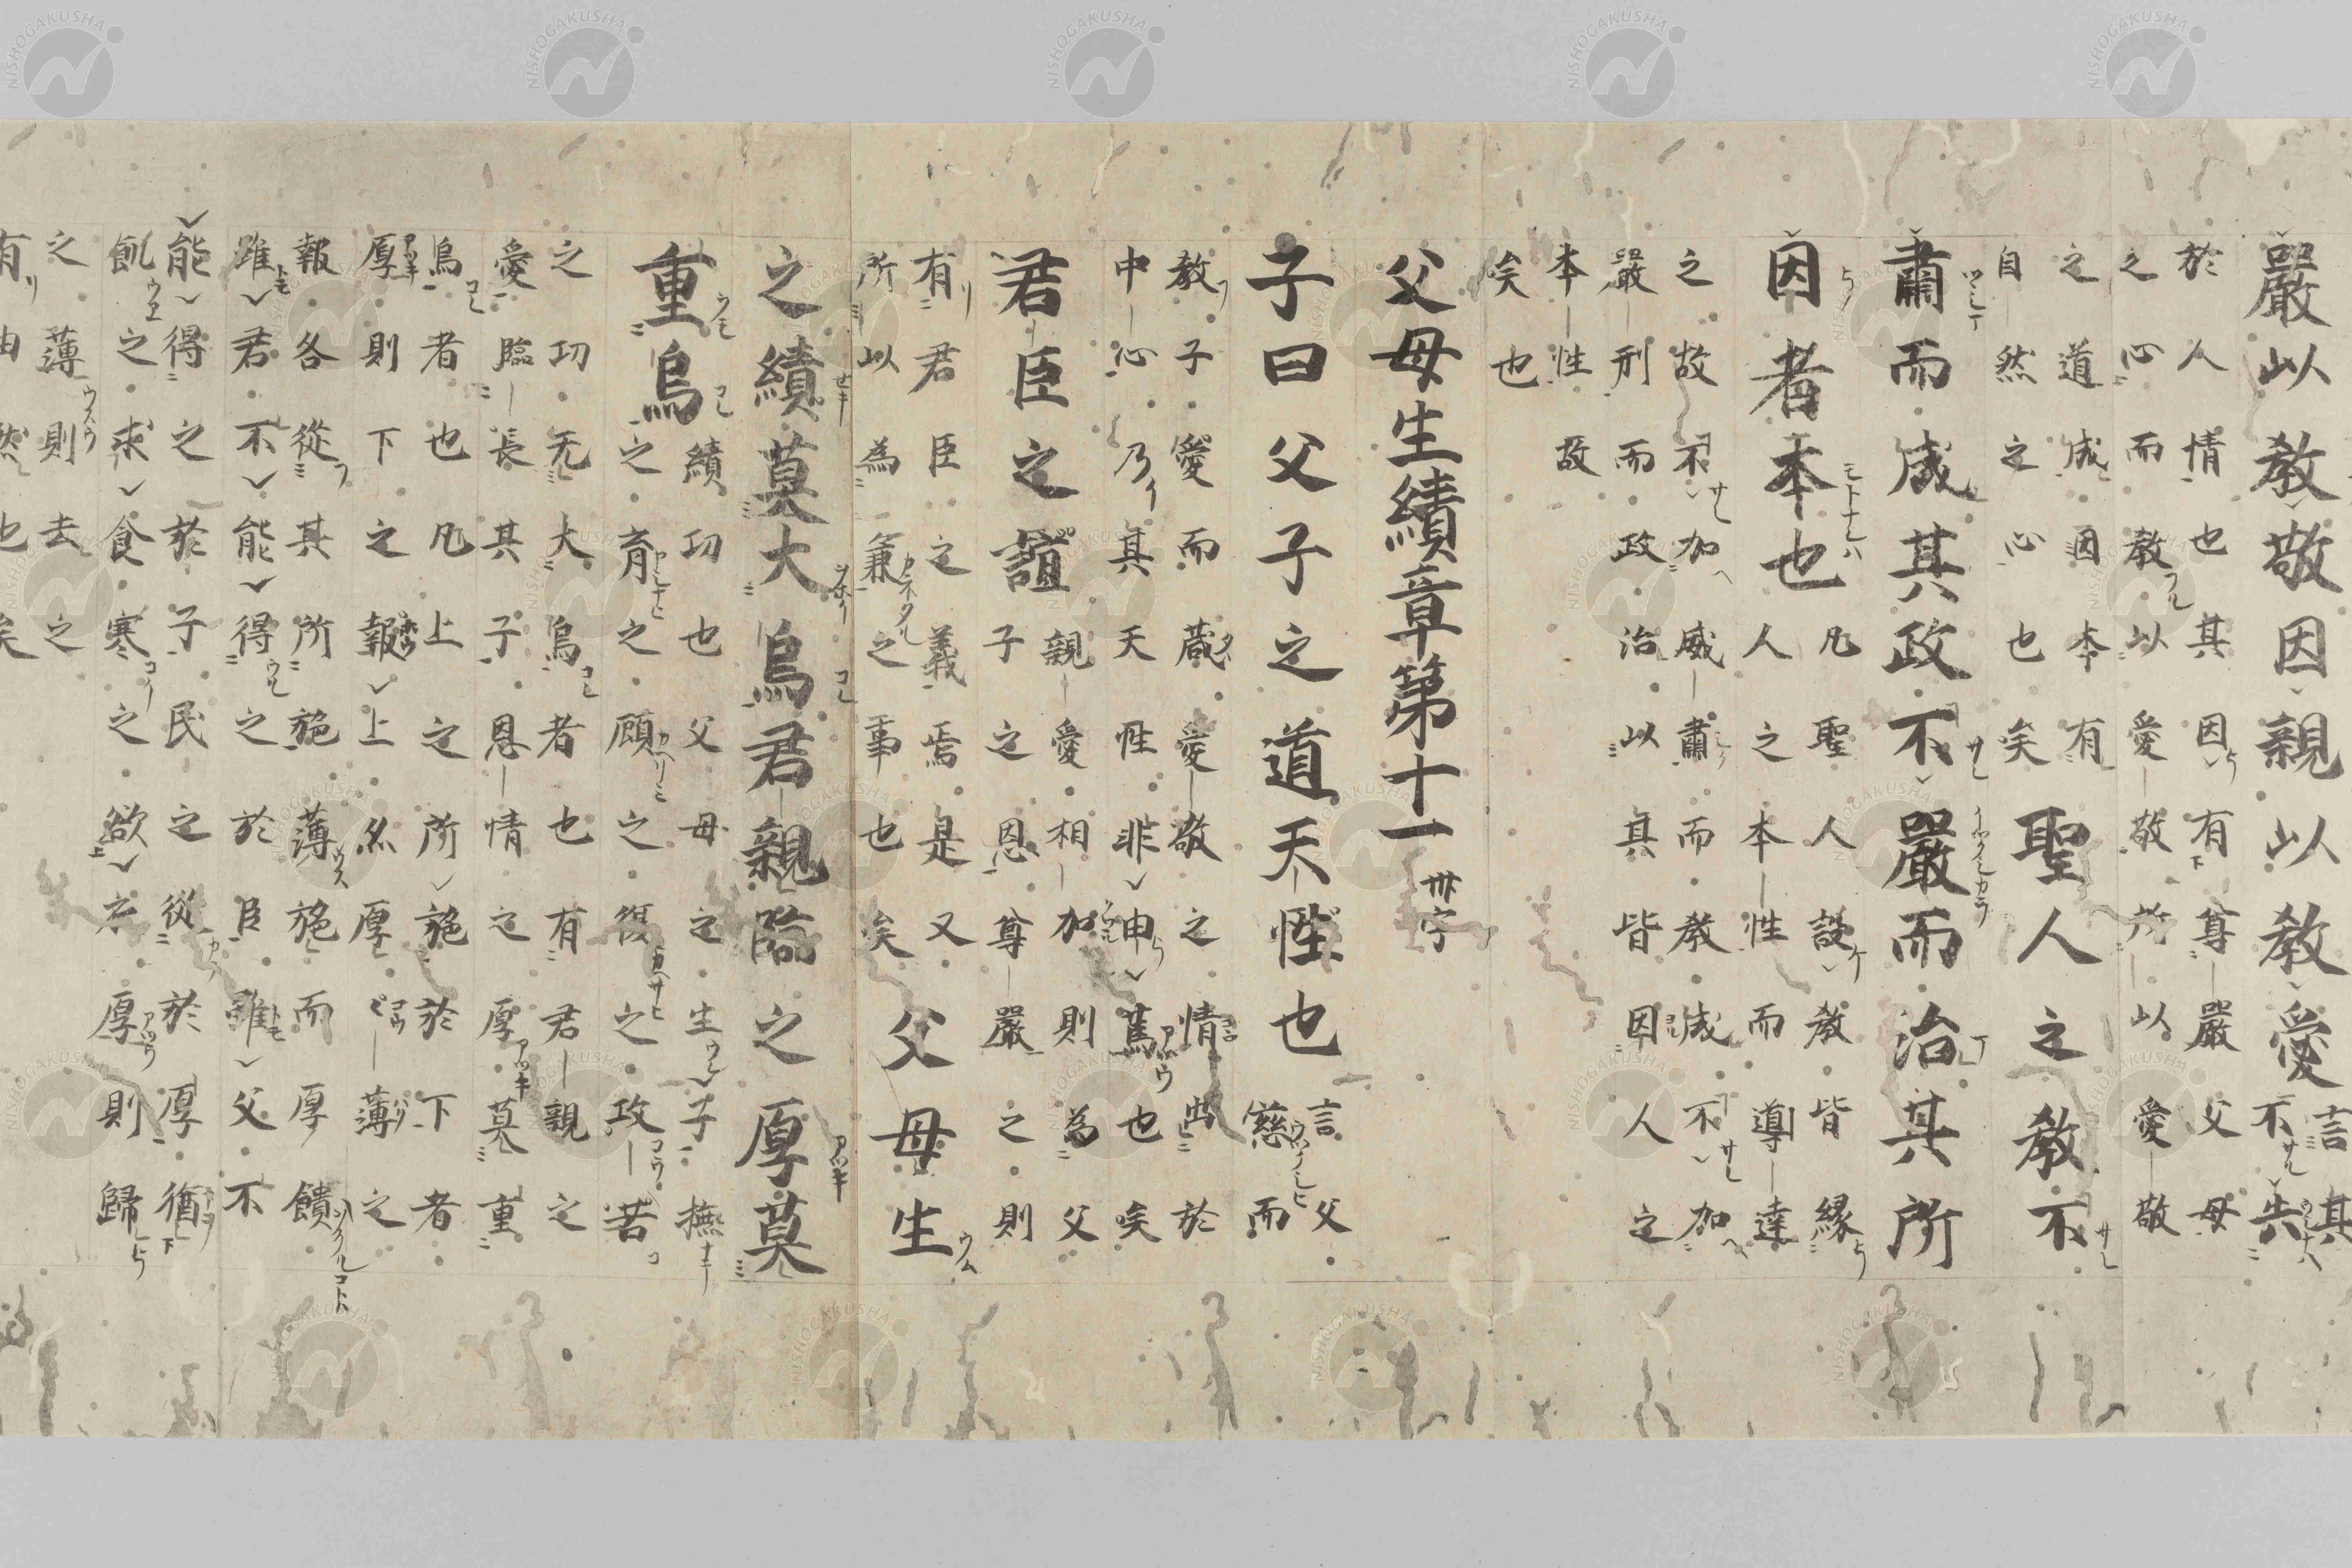 嚴以教敬因親以教愛
言其
不失
於人情也其因有尊嚴父母
之心而教以愛敬所以愛敬
之道成因本有
自然之心也矣
聖人之教不
肅而成其政不嚴而治其所
因者本也
凡聖人設教皆緣
人之本性而導達
之故不加威肅而教成不加
嚴刑而政治以其皆因人之
本性故
矣也
父母生績章第十一卅字
子曰父子之道天性也
言父
慈而
教子愛而蔵愛敬之情出於
中心乃其天性非申篤也矣
君臣之誼
親愛相加則為父
子之恩尊嚴之則
有君臣之義焉是又
所以為兼之事也矣
父母生
之績莫大焉君親臨之厚莫
重焉
績功也父母之生子撫
之育之顧之復之攻苦
之功无大焉者也有君親之
愛臨長其子恩情之厚莫重
焉者也凡上之所施於下者
厚則下之報上亦厚〻薄之
報各從其所施薄施而厚饋
雖君不能得之於臣雖父不
能得之於子民之從於厚猶
飢之求食寒之欲衣厚則歸
之薄則去之
有由然也矣